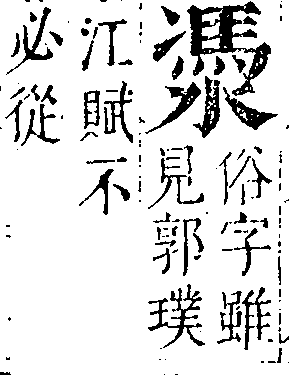 㵗
俗字雖
見郭璞
江賦不
必從